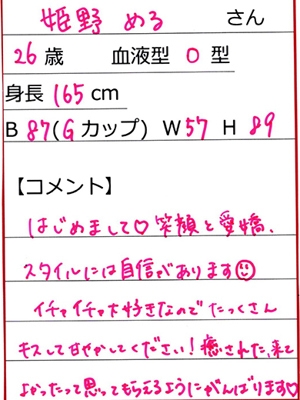 姫野 める さん
26歳 血液型 O 型
身長 165 cm
B 87(Gカップ) W57 H 89
【コメント】
はじめまして♡笑顔と愛嬌、
スタイルには自信があります☺
イチャイチャ大好きなのでたっくさん
キスして甘やかしてください!癒された、来て
よかったって思ってもらえるようにがんばります♡